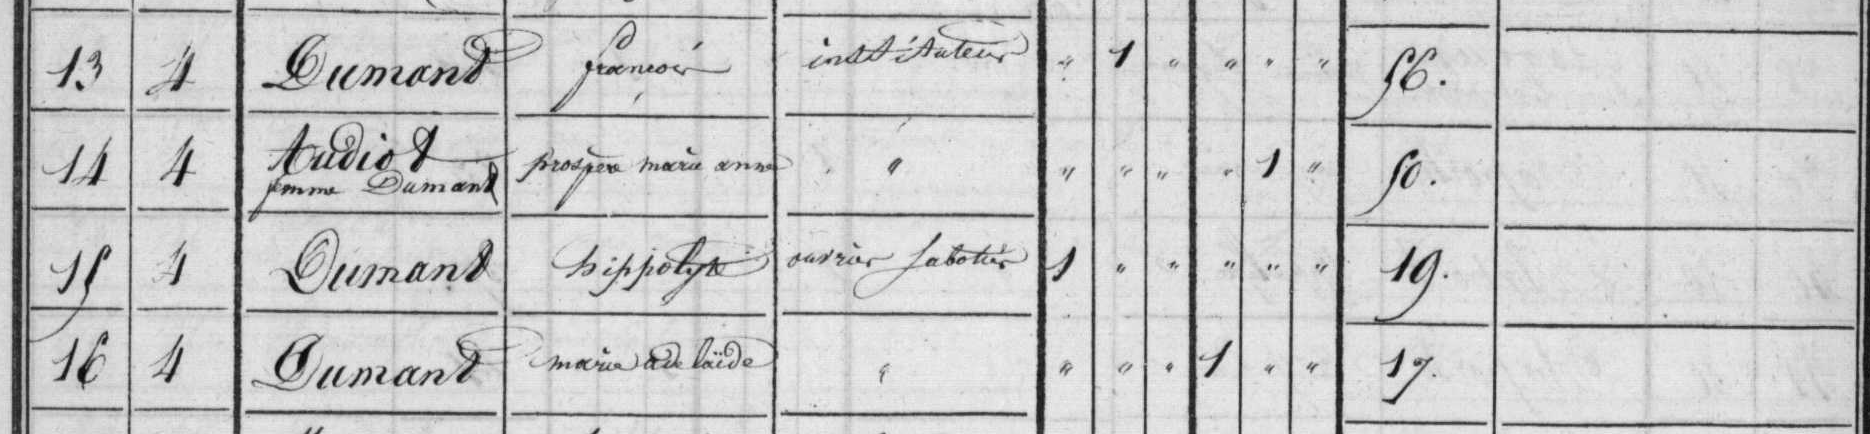 13 4 Dumand françois instituteur " 1 " " " " 56.
14 4 Audiot prospère marie anne " " " " " 1 " 50.
femme Dumand
15 4 Dumand hippolyte ouvrier sabotier 1 " " " " " 19.
16 4 Dumand marie adelaïde " " " " 1 " " 17.